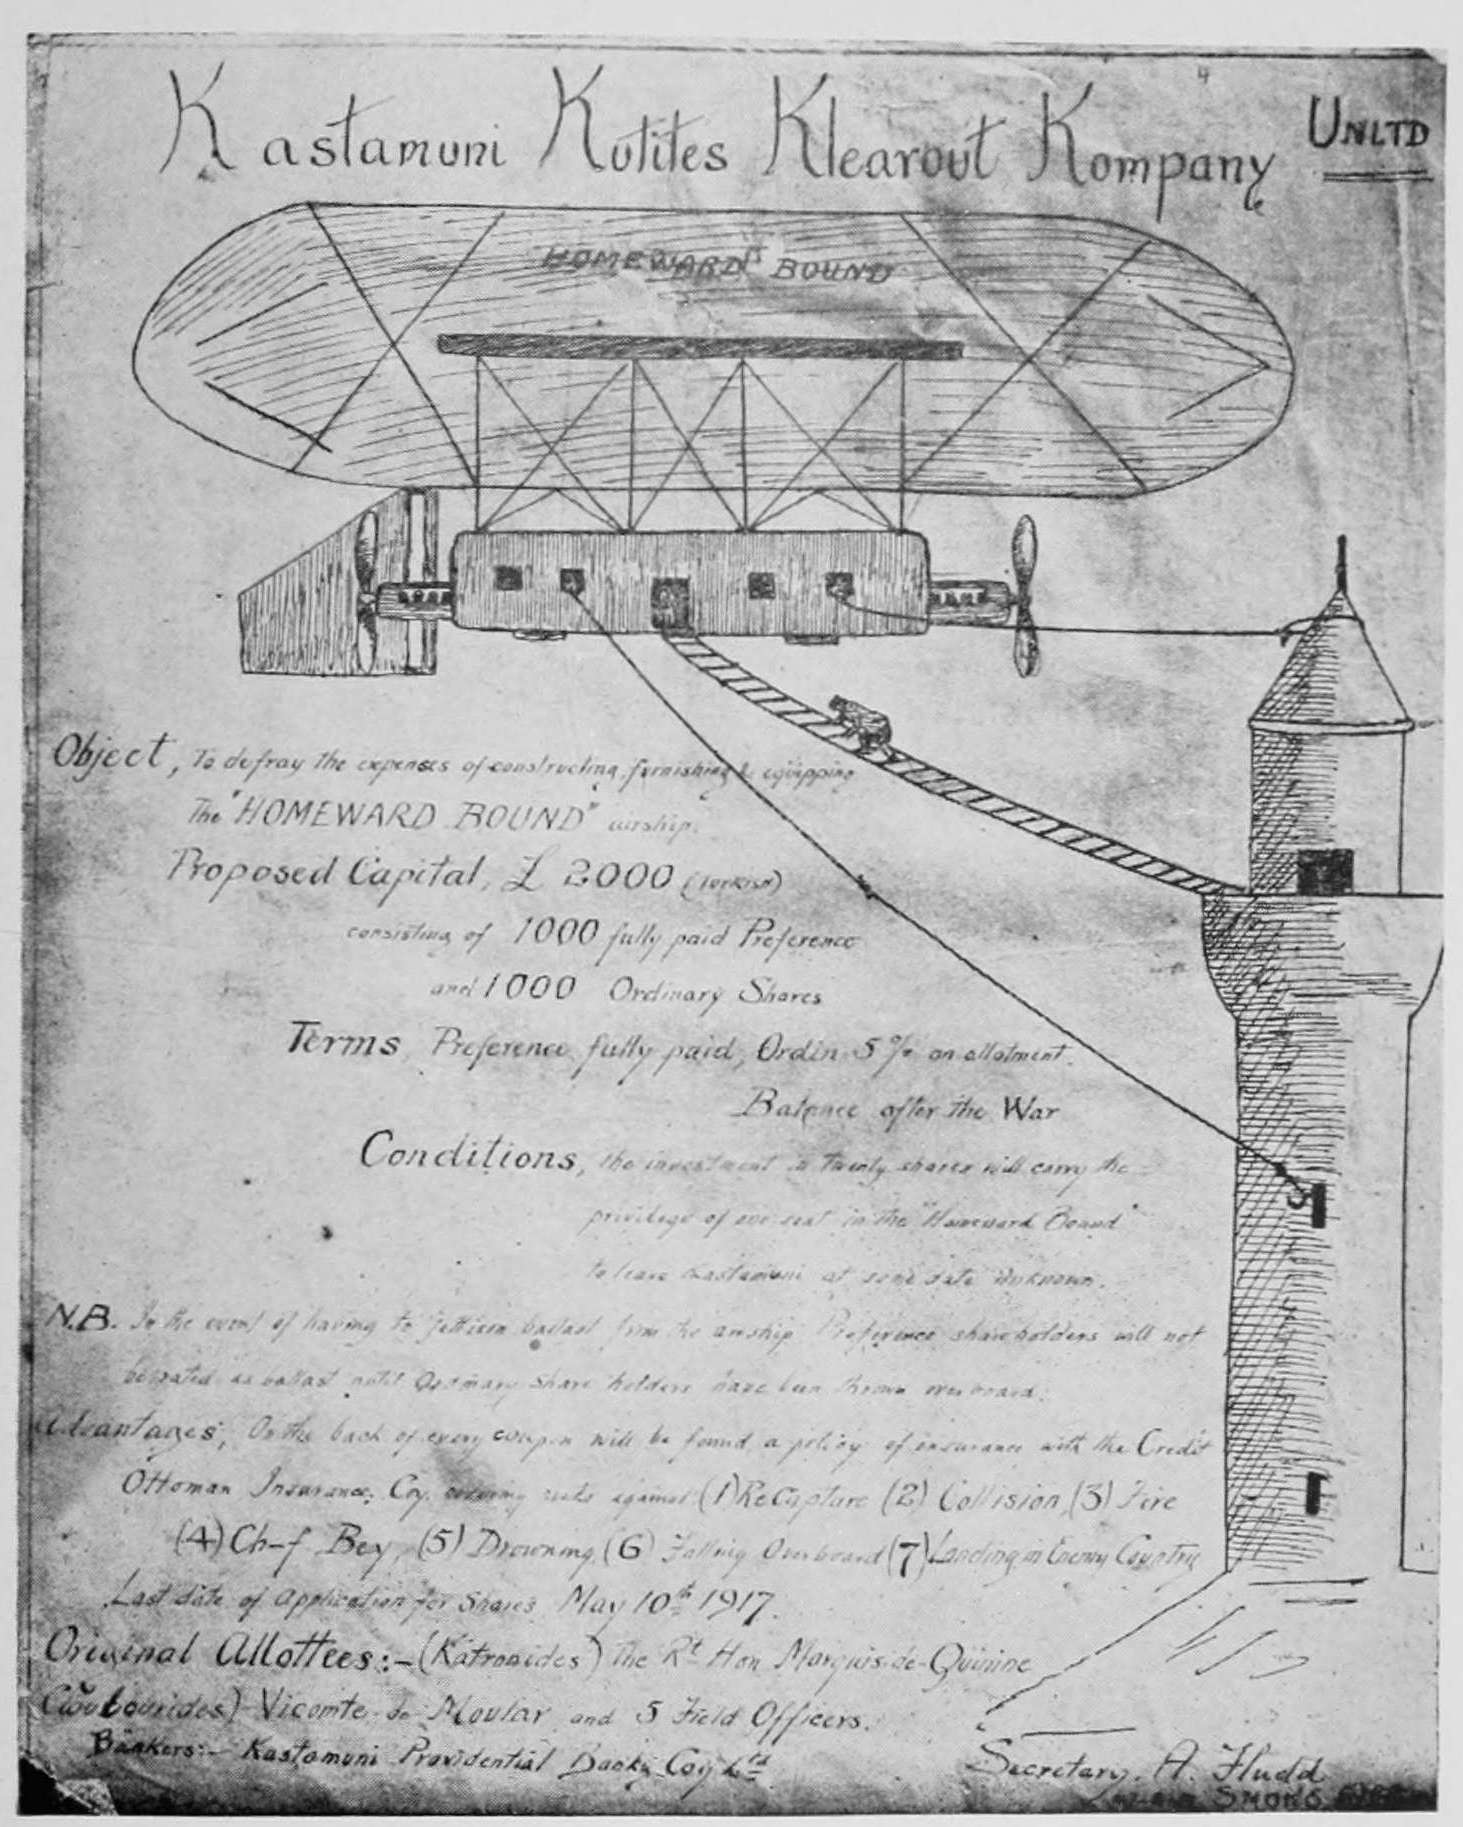 4
Kastamuni Kutites Klearout Kompany UNLTD
HOMEWARD BOUND
Object, To defray the expenses of constructing, furnishing & equipping
The "HOMEWARD BOUND" airship.
Proposed Capital, £ 2000 (Turkish)
consisting of 1000 fully paid Preference
and 1000 Ordinary Shares
Terms Preference fully paid, Ordin 5% on allotment.
Balance after the War
Conditions, the investment in twenty shares will carry the
privilege of one seat in the "Homeward Bound"
to leave Kastamuni at some date unknown.
N.B. In the event of having to jettison ballast from the airship Preference shareholders will not
be rated as ballast until Ordinary Share holders have been thrown overboard.
Advantages; On the back of every coupon will be found a policy of insurance with the Credit
Ottoman Insurance Coy. covering risks against (1) ReCapture (2) Collision (3) Fire
(4) Ch-f Bey, (5) Drowning, (6) Falling Overboard (7) Landing in Enemy Country
Last date of Application for Shares May 10th 1917.
Original Allottees:- ( The Rt Hon Marquis-de-Quinine
Vicomte de Moular and 5 Field Officers.
Bankers:- Kastamuni Providential Bank Coy Ltd
Secretary. A. Fludd